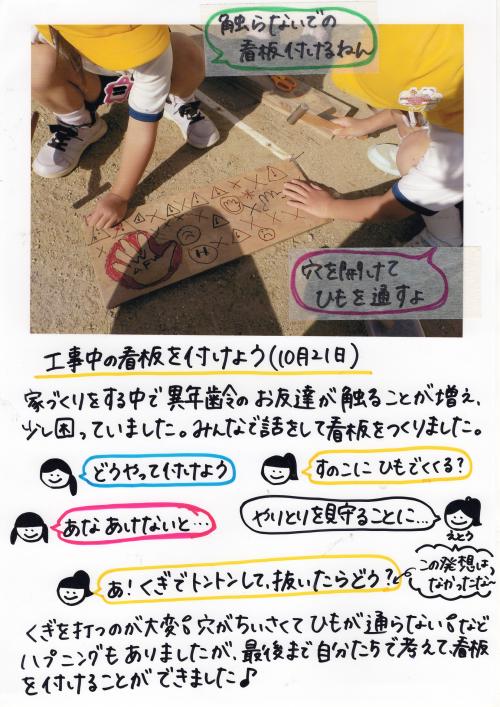 触らないでの
看板付けるねん
穴を開けて
ひもを通すよ
工事中の看板を付けよう(10月21日)
家づくりをする中で異年齢のお友達が触ることが増え、
少し困っていました。みんなで話をして看板をつくりました。
どうやって付けよう
すのこにひもでくくる?
あなあけないと…
やりとりを見守ることに…
えとう
この発想は
なかったな〜
あ!くぎでトントンして、抜いたらどう?
くぎを打つのが大変!穴がちいさくてひもが通らない!など
ハプニングもありましたが、最後まで自分たちで考えて、看板
を付けることができました♪